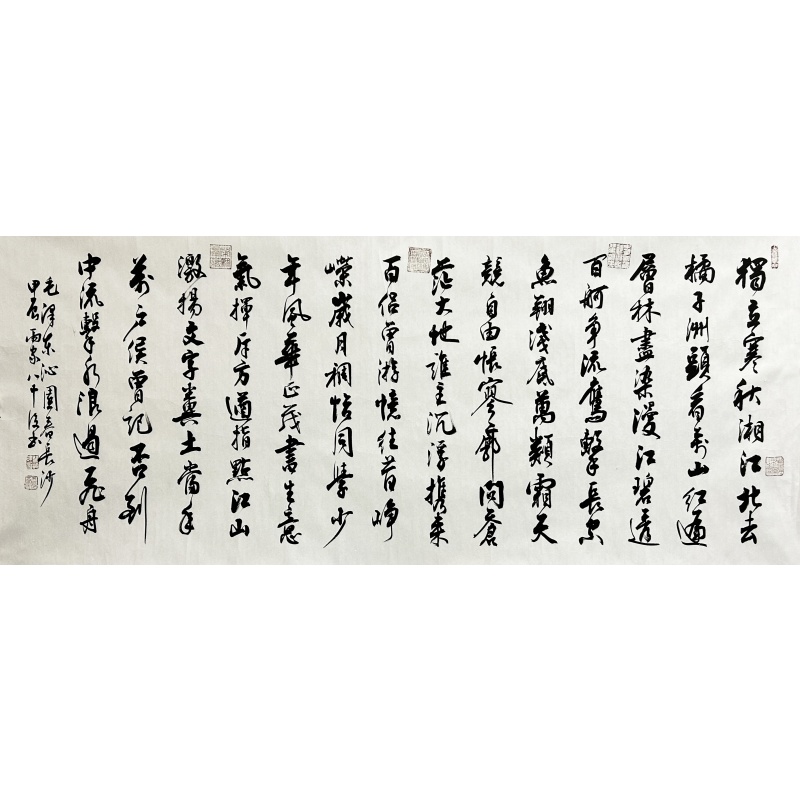 獨立寒秋湘江北去
橘子洲頭看萬山紅遍
層林盡染漫江碧透
百舸爭流鷹擊長空
魚翔淺底萬類霜天
競自由悵寥廓問蒼
茫大地誰主沉浮携來
百侶曾游憶往昔崢
嶸歲月稠恰同學少
年風華正茂書生意
氣揮斥方遒指點江山
激揚文字糞土當年
萬戶侯曾記否到
中流擊水浪遏飛舟
毛澤东沁園春長沙
甲辰雨八十書